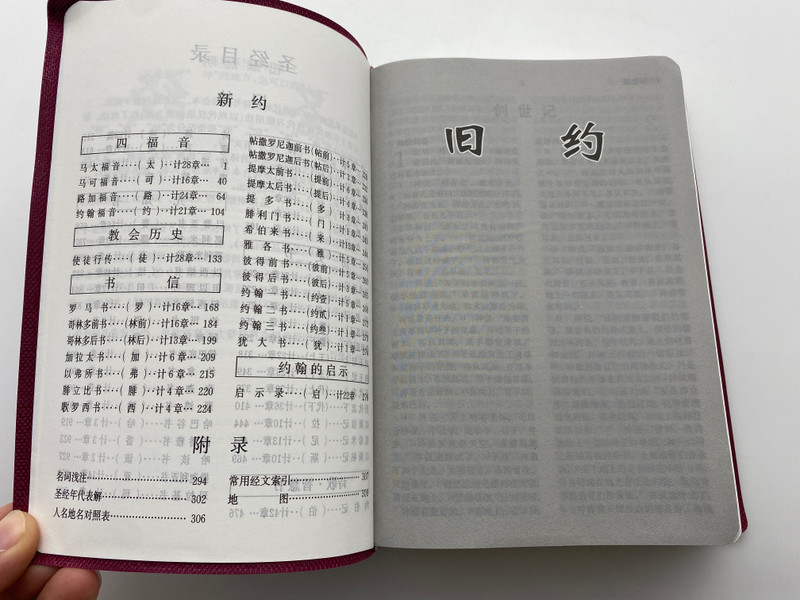 新 约
四 福 音
马太福音····( 太 )··计28章··· 1
马可福音····( 可 )··计16章··· 40
路加福音····( 路 )··计24章··· 64
约翰福音····( 约 )··计21章··· 104
教 会 历 史
使徒行传····( 徒 )··计28章··· 133
书 信
罗 马 书····( 罗 )··计16章··· 168
哥林多前书···(林前)··计16章··· 184
哥林多后书···(林后)··计13章··· 199
加拉太书····( 加 )··计 6 章··· 209
以弗所书····( 弗 )··计 6 章··· 215
腓立比书····( 腓 )··计 4 章··· 220
歌罗西书····( 西 )··计 4 章··· 224
帖撒罗尼迦前书(帖前)··计
帖撒罗尼迦后书(帖后)··计
提摩太前书···(提前)··计
提摩太后书···(提后)··计
提 多 书····( 多 )··计
腓利门书····( 门 )··计
希伯来书····( 来 )··计
雅 各 书····( 雅 )··计
彼得前书····(彼前)··计
彼得后书····(彼后)··计
约翰一书····(约壹)··计
约翰二书····(约贰)··计
约翰三书····(约叁)··计
犹 大 书····( 犹 )··计
约翰的启示
启 示 录····( 启 )··计22章···
附 录
名词浅注························ 294
圣经年代表解···················· 302
人名地名对照表·················· 306
常用经文索引····················
地 图····················
创世记
旧 约